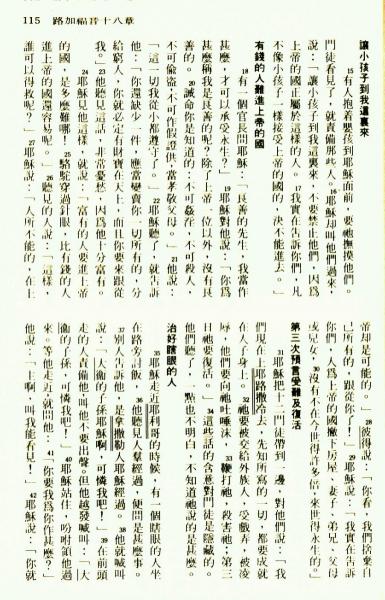 115 路加福音十八章
讓小孩子到我這裏來
15有人抱着嬰孩到耶穌面前，要祂撫摸他們。
門徒看見了，就責備那些人。16耶穌却叫他們過來，
說：「讓小孩子到我這裏來，不要禁止他們，因爲
上帝的國正屬於這樣的人。17我實在告訴你們，凡
不像小孩子一樣接受上帝的國的，决不能進去。」
有錢的人難進上帝的國
18有一個官長問耶穌：「良善的先生，我當作
甚麼，才可以承受永生？」19耶穌對他說：「你爲
甚麼稱我是良善的呢？除了上帝一位以外，沒有良
善的。20誡命你是知道的：不可姦淫，不可殺人，
不可偷盜，不可作假證供，當孝敬父母。」21他說：
「這一切我從小都遵守了。」22耶穌聽了，就告訴
他：「你還缺少一件，應當變賣你一切所有的，分
給窮人，你就必定有財寶在天上，而且你要來跟從
我。」23他聽見這話，非常憂愁，因爲他十分富有。
24耶穌見他這樣，就說：「富有的人要進上帝
的國，是多麼難哪！25駱駝穿過針眼，比有錢的人
進上帝的國還容易呢。」26聽見的人說：「這樣，
誰可以得救呢？」27耶穌說：「人所不能的，在上
帝却是可能的。」28彼得說：「你看，我們捨棄自
己所有的，跟從你了。」29耶穌說：「我實在告訴
你們，人爲上帝的國撇下房屋、妻子、弟兄、父母
或兒女，30沒有不在今世得許多倍，來世得永生的。」
第三次預言受難及復活
31耶穌把十二門徒帶到一邊，對他們說：「我
們現在上耶路撒冷去，先知所寫的一切，都要成就
在人子身上。32祂要被交給外族人，受戲弄，被凌
辱，他們要向祂吐唾沫，33鞭打祂，殺害祂；第三
日祂要復活。」34這些話的含意對門徒是隱藏的。
他們聽了，一點也不明白，不知道祂說的是甚麼。
治好瞎眼的人
35耶穌走近耶利哥的時候，有一個瞎眼的人坐
在路旁討飯，36他聽見人羣經過，便問是甚麼事。
37別人告訴他，是拿撒勒人耶穌經過。38他就喊叫
說：「大衞的子孫耶穌啊，可憐我吧！」39在前頭
走的人責備他，叫他不要出聲；但他越發喊叫：「大
衞的子孫，可憐我吧！」40耶穌站住，吩咐領他過
來。等他走近，就問他：41「你要我爲你作甚麼？」
他說：「主啊，叫我能看見！」42耶穌說：「你就